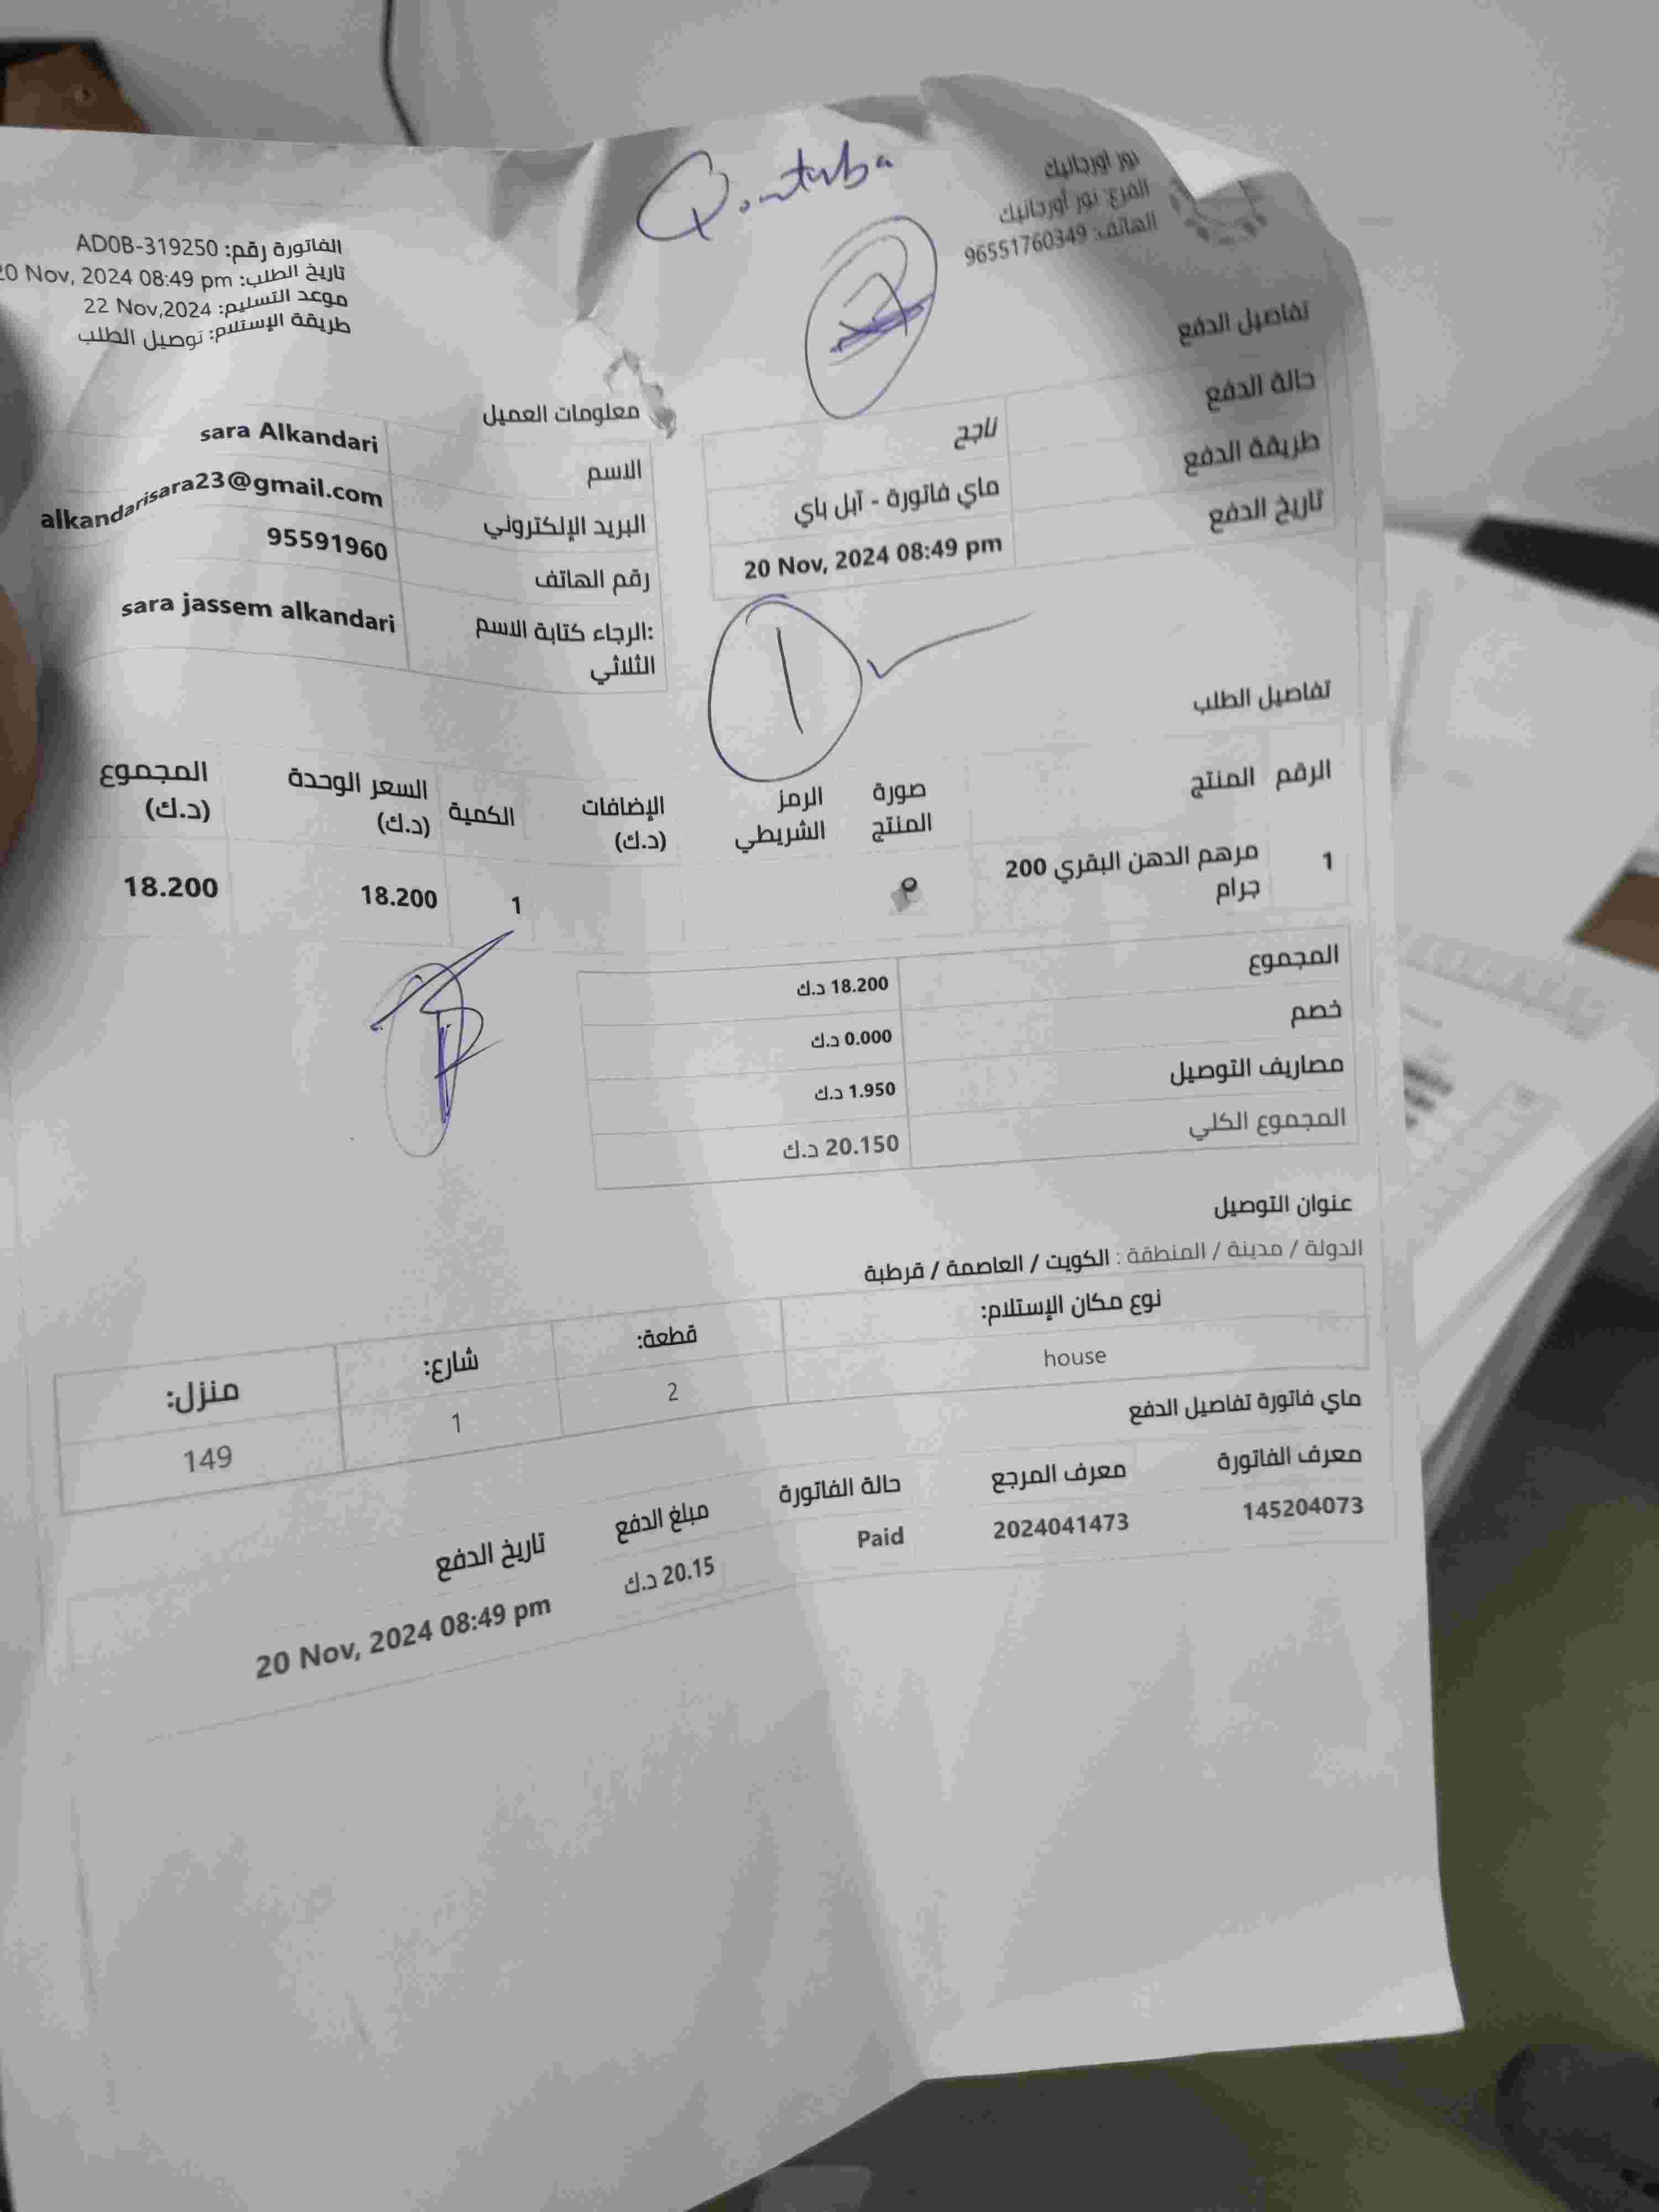 Qortuba
نور اورجانيك
الفرع: نور أورجانيك
الهاتف: 96551760349
الفاتورة رقم: AD0B-319250
تاريخ الطلب: 20 Nov, 2024 08:49 pm
موعد التسليم: 22 Nov,2024
طريقة الإستلام: توصيل الطلب
تفاصيل الدفع
حالة الدفع ناجح
طريقة الدفع ماي فاتورة - آبل باي
تاريخ الدفع 20 Nov, 2024 08:49 pm
معلومات العميل
الاسم sara Alkandari
البريد الإلكتروني alkandarisara23@gmail.com
رقم الهاتف 95591960
:الرجاء كتابة الاسم sara jassem alkandari
الثلاثي
1
تفاصيل الطلب
الرقم المنتج صورة الرمز الإضافات الكمية السعر الوحدة المجموع
المنتج الشريطي (د.ك) (د.ك) (د.ك)
1 مرهم الدهن البقري 200 1 18.200 18.200
جرام
المجموع 18.200 د.ك
خصم 0.000 د.ك
مصاريف التوصيل 1.950 د.ك
المجموع الكلي 20.150 د.ك
عنوان التوصيل
الدولة / مدينة / المنطقة : الكويت / العاصمة / قرطبة
نوع مكان الإستلام: قطعة: شارع: منزل:
house 2 1 149
ماي فاتورة تفاصيل الدفع
معرف الفاتورة معرف المرجع حالة الفاتورة مبلغ الدفع تاريخ الدفع
145204073 2024041473 Paid 20.15 د.ك 20 Nov, 2024 08:49 pm